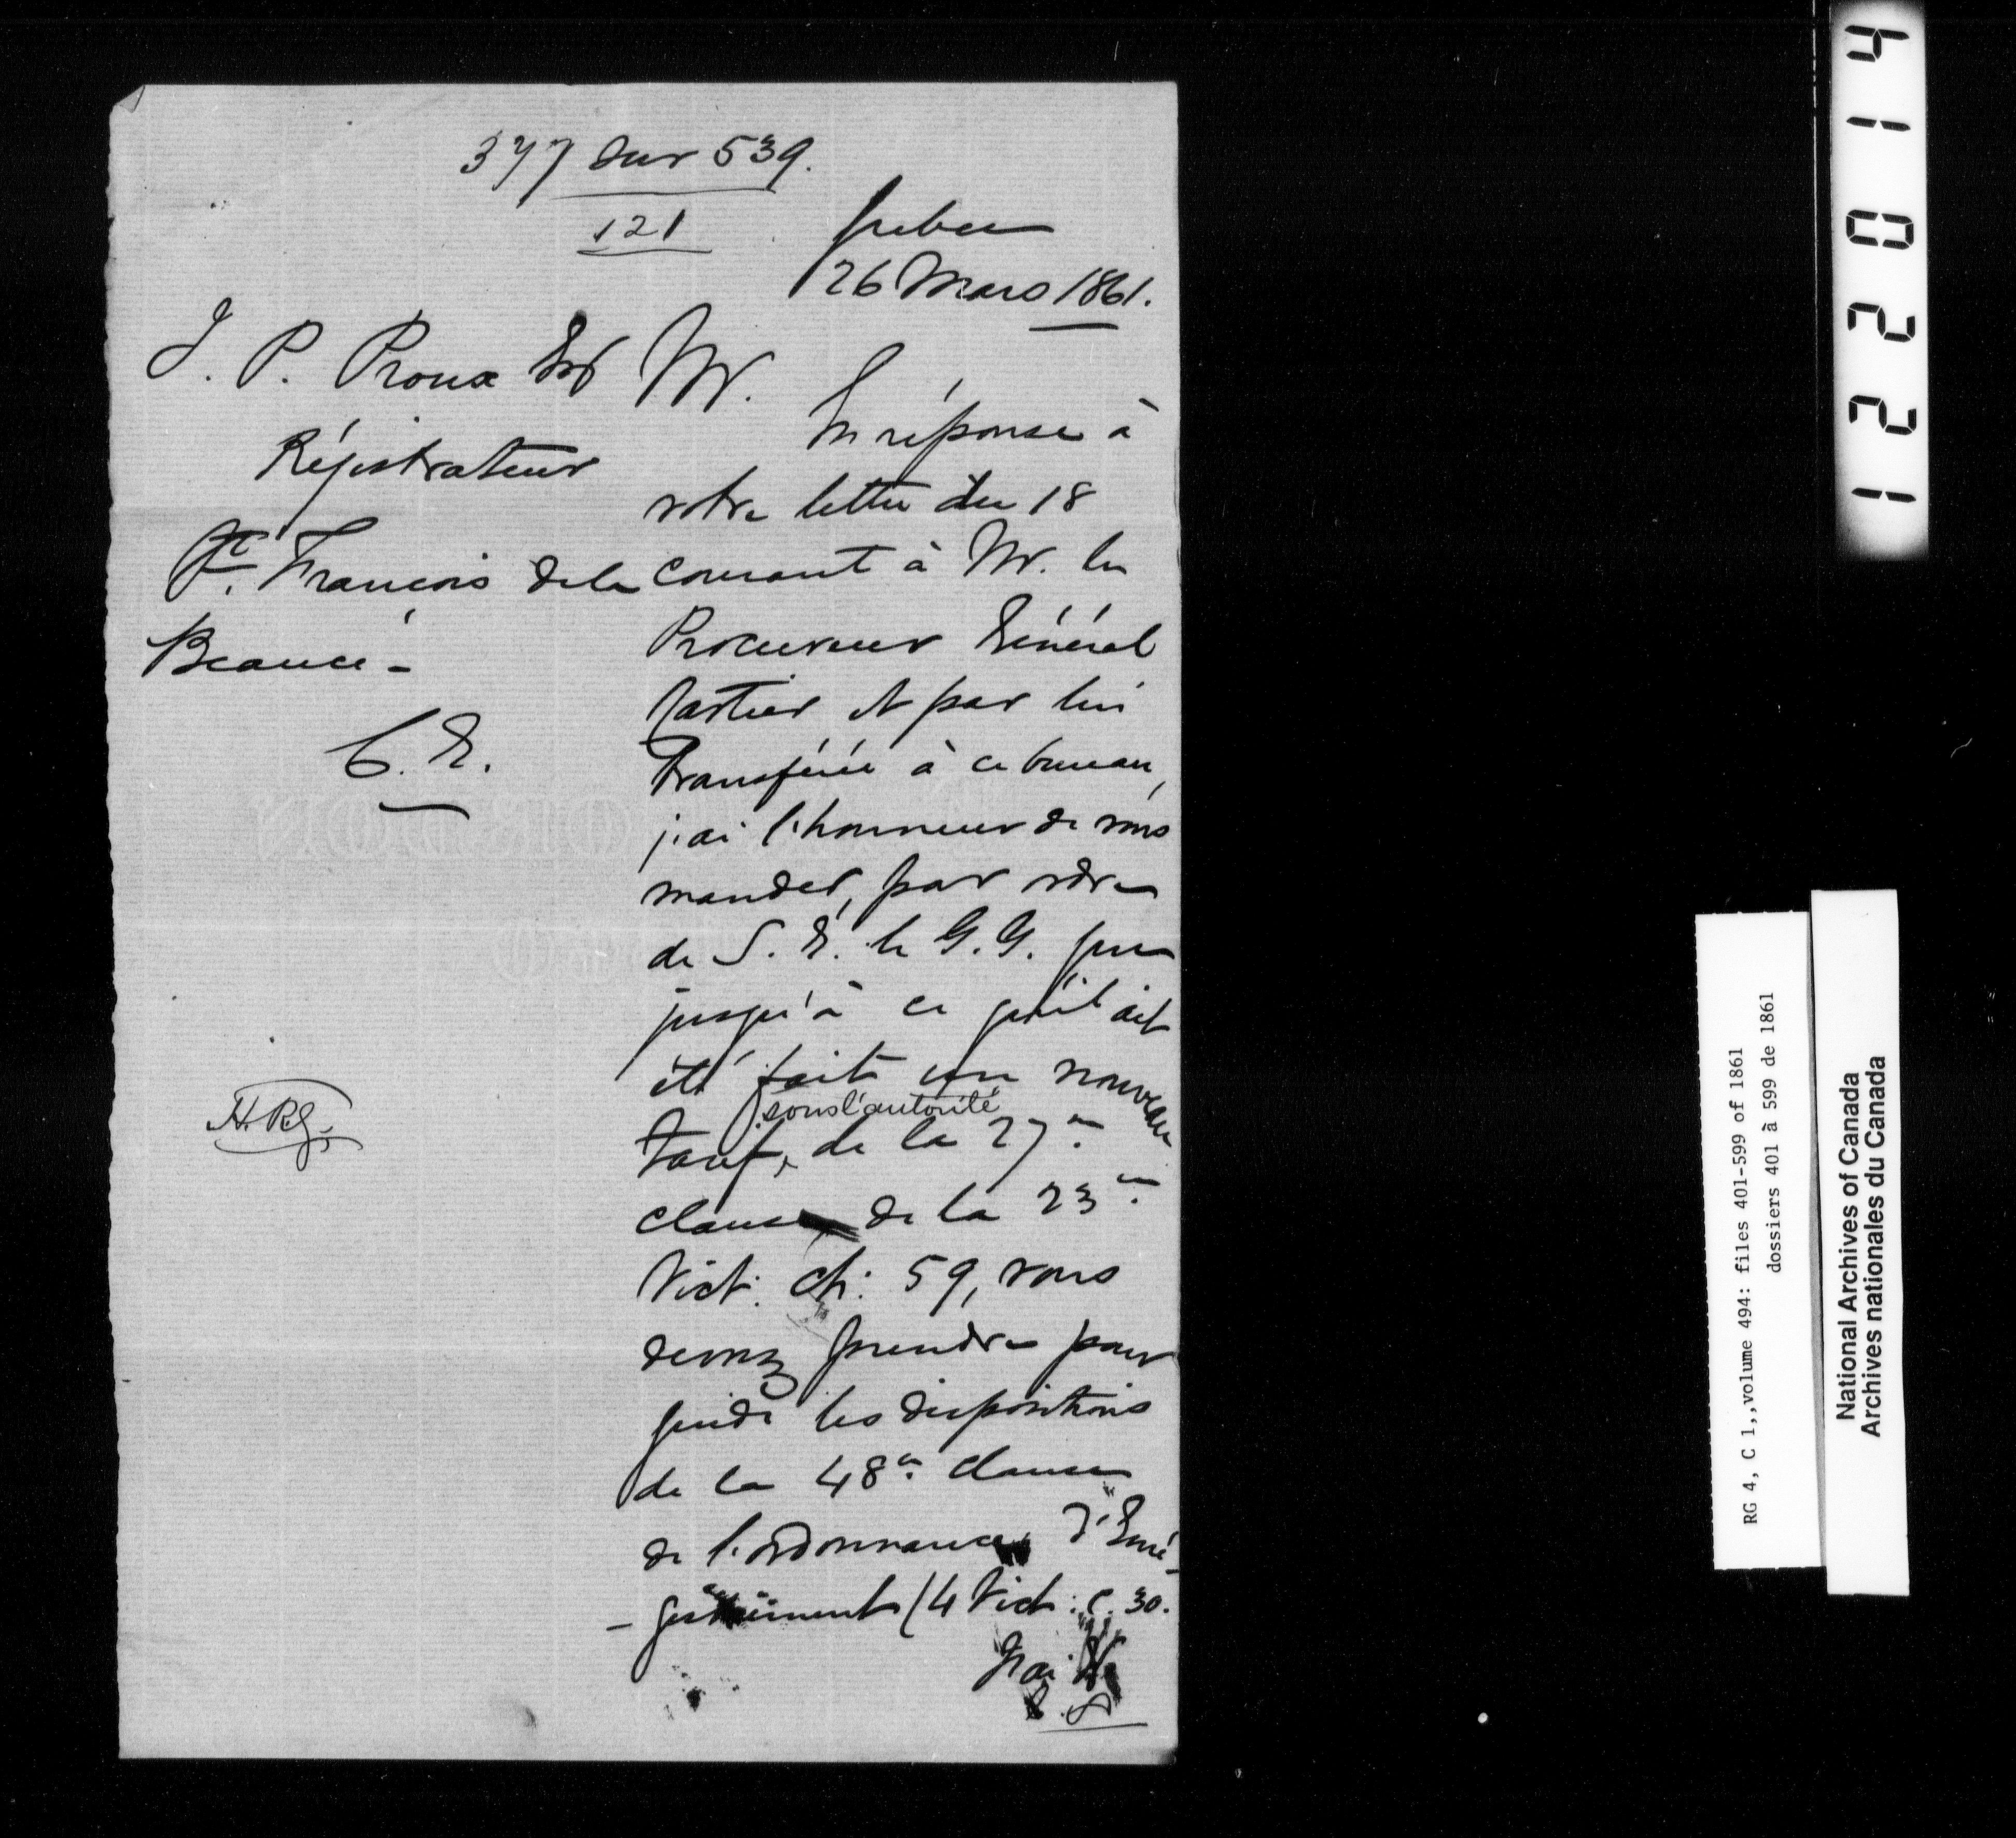 377 sur 539.
121
Québec
26 Mars 1861.
J. P. Proux Ecr
Régistrateur
St. François de la
Beauce -
C. E.
H.R.G.
Mr.
En réponse à
votre lettre du 18
courant à Mr. le
Procureur Général
Cartier et par lui
transférée à ce bureau,
j'ai l'honneur de vous
mander, par ordre
de S. E. le G. G. que
jusqu'à ce qu'il ait
été fait un nouveau
tarif, sous l'autorité de la 27e.
clause de la 23e.
Vict. ch: 59, vous
devez prendre pour
guide les dispositions
de la 48e. clause
de l'ordonnance d'Enré-
- gistrement (4 Vict: c. 30.
J'ai
12204
RG 4, C 1,,volume 494: files 401-599 of 1861
dossiers 401 à 599 de 1861
National Archives of Canada
Archives nationales du Canada